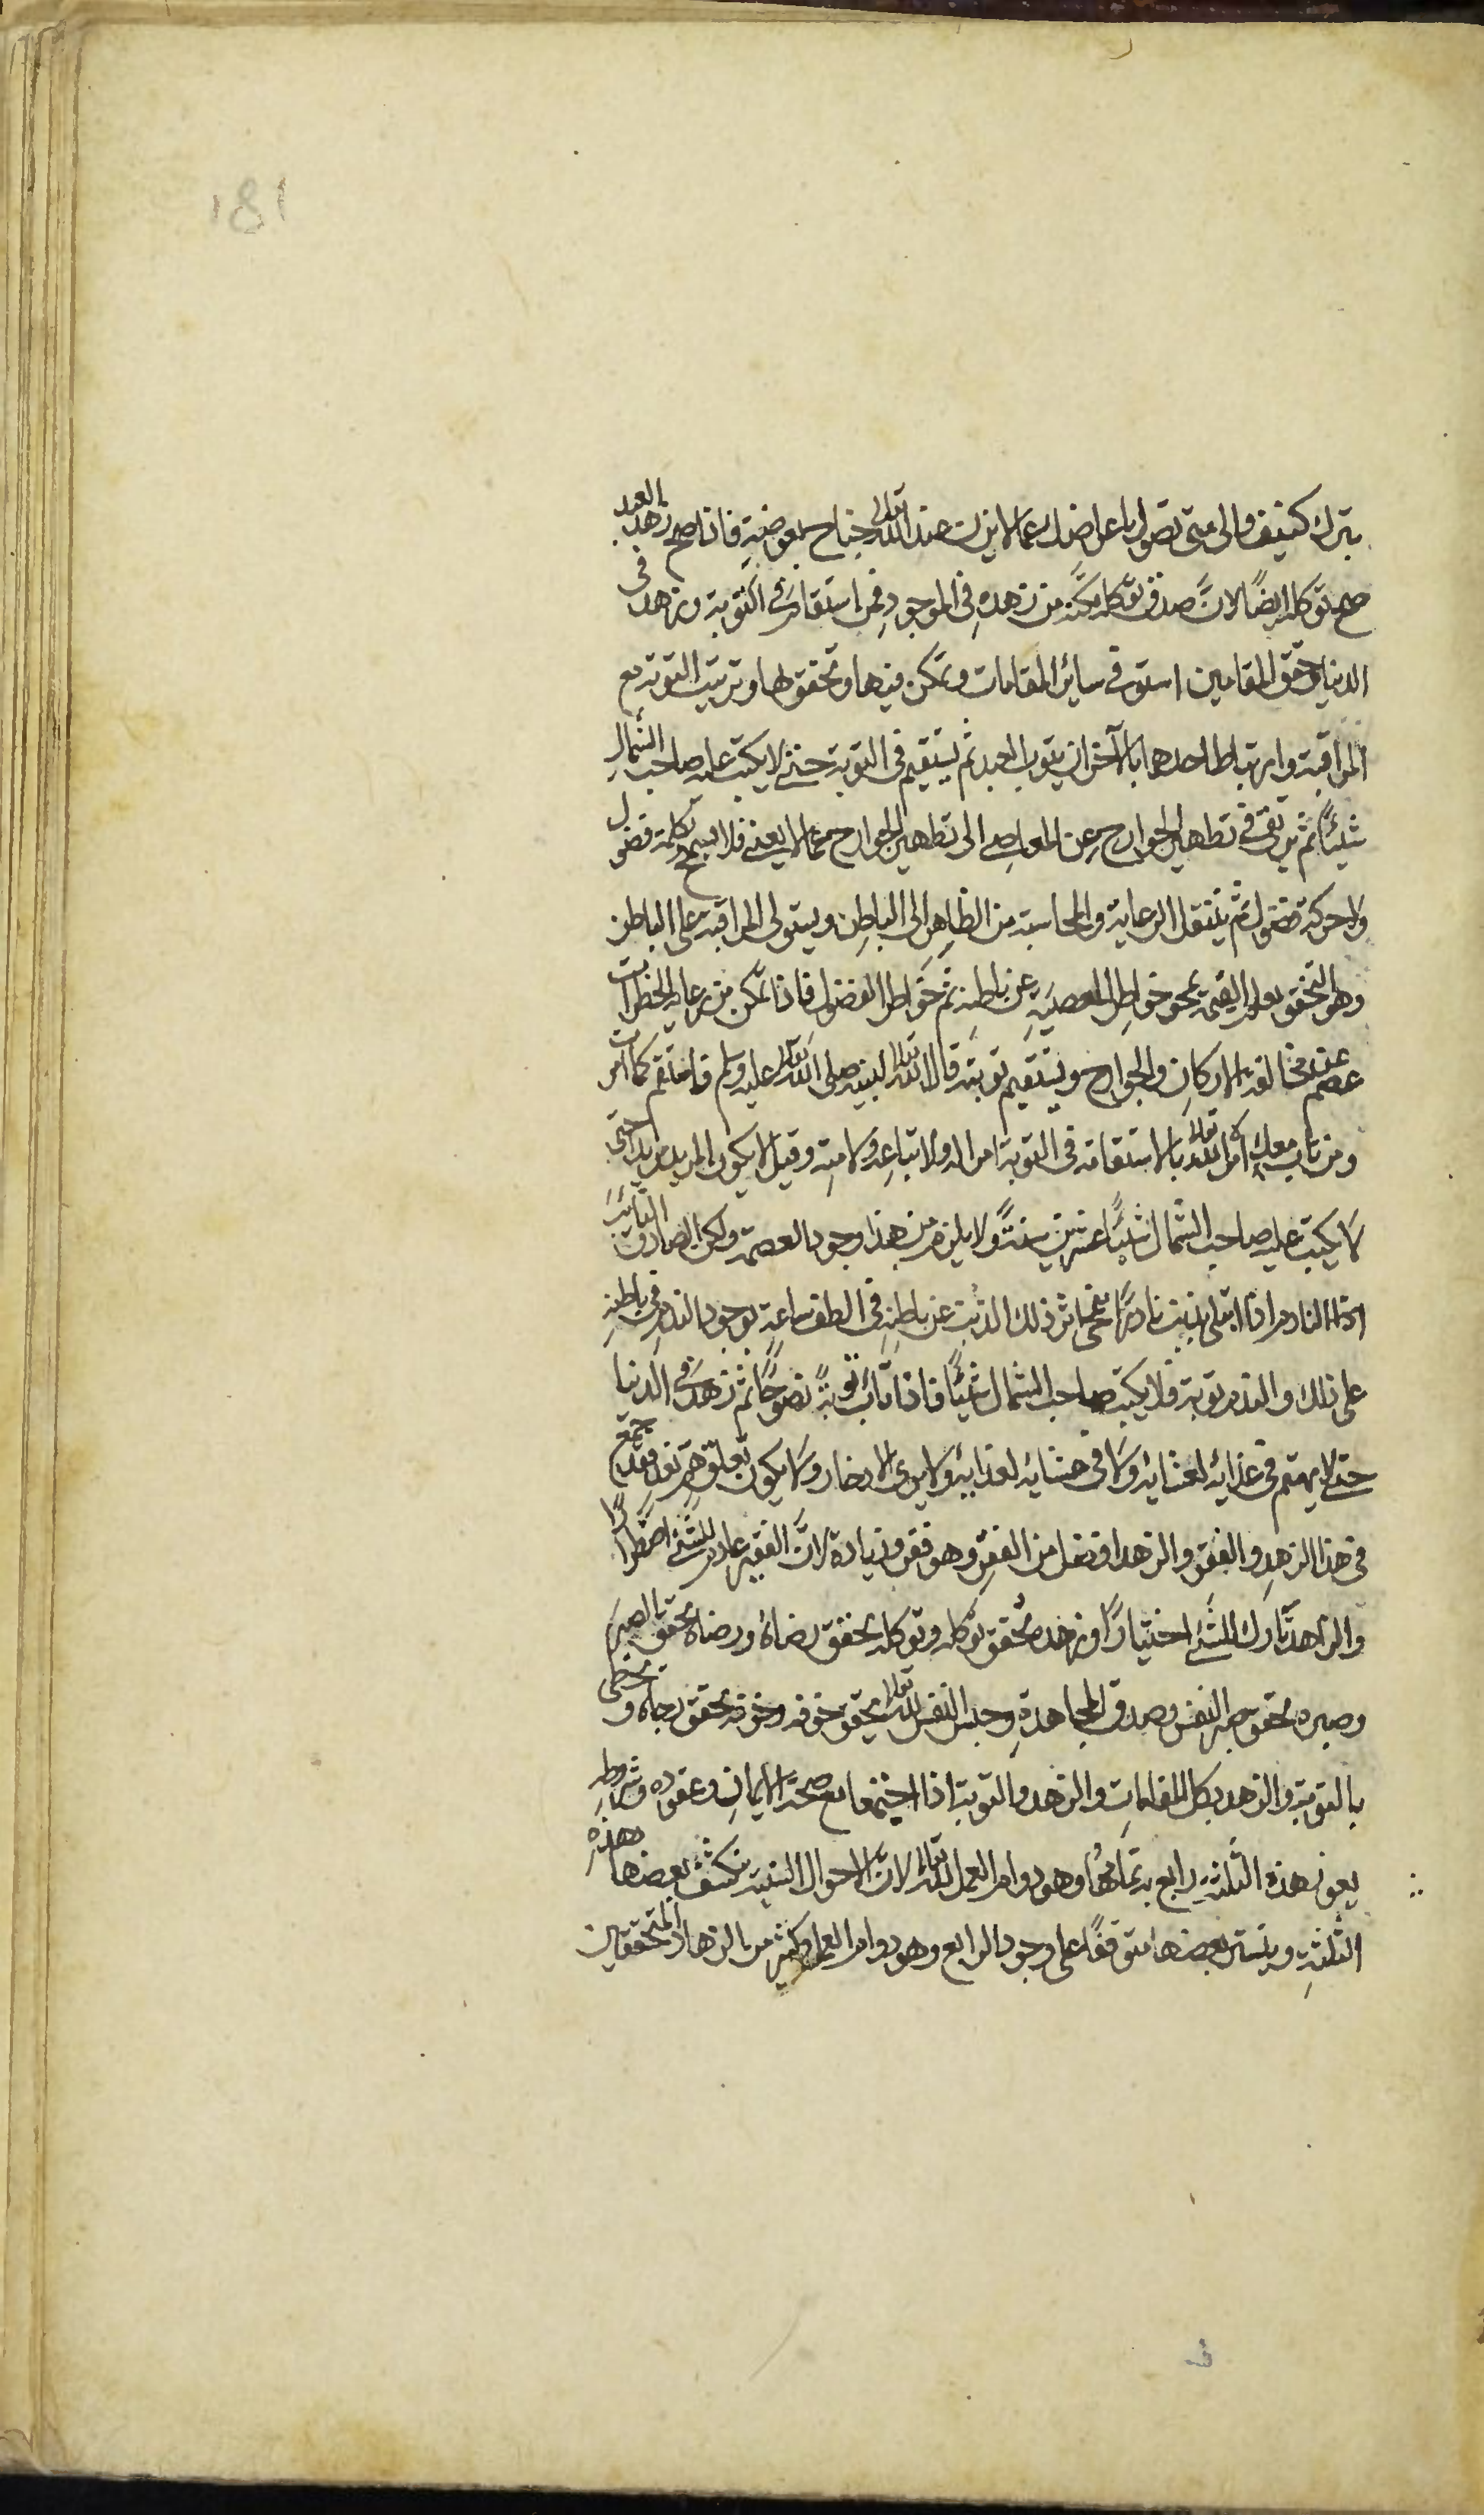 181
بترك كنيف والى متى تصول باعراضك عما لا يزن عند الله تعالى جناح بعوضة فاذا صح زهد العبد
صح توكله ايضًا لانّ صدق توكله مكّنه من زهده في الموجود فمن استقام في التوبة وزهد في
الدنيا وحقق المقامين استوفى سائر المقامات وتمكن فيها وتحقق بها وترتيب التوبة مع
المراقبة وارتباط احدهما بالآخر ان يتوب العبد ثم يستقيم في التوبة حتى لا يكتب عليه صاحب الشمال
شيئًا ثم يرتقي في تطهير الجوارح عن المعاصي الى تطهير الجوارح عما لا يعني فلا يسمح بكلمة فضول
ولا حركة فضول ثم ينتقل الرعاية والمحاسبة من الظاهر الى الباطن ويستولى المراقبة على الباطن
وهو التحقق بعلم القيام بمحو خواطر المعصية عن باطنه ثم خواطر الفضول فاذا تمكن من رعاية الخطرات
عصم عن مخالفة الاركان والجوارح ويستقيم توبته قال الله تعالى لنبيه صلى الله تعالى عليه وسلم فاستقم كما امرت
ومن تاب معك امره الله تعالى بالاستقامة في التوبة امرا له ولاتباعه ولامته وقيل لا يكون المريد مريدا حتى
لا يكتب عليه صاحب الشمال شيئًا عشرين سنةً ولا يلزم من هذا وجود العصمة ولكن الصادق التائب
النادم اذا ابتلى بذنب نادرًا ينمحى اثر ذلك الذنب عن باطنه في الطف ساعة بوجود الندم في باطنه
على ذلك والندم توبة فلا يكتب صاحب الشمال شيئًا فاذا تاب توبةً نصوحًا ثم زهد في الدنيا
حتى لا يهتم في غدائه لعشائه ولا في عشائه لغدائه ولا يرى الادخار ولا يكون تعلق هم بغد فقد جمع
في هذا الزهد والفقر والزهد افضل من الفقر وهو فقر وزيادة لانّ الفقير عادم للشئ اضطرارًا
والزاهد تارك للشئ اختيارًا وزهده يحقق توكله وتوكله يحقق رضاه ورضاه يحقق الصبر
وصبره يحقق حبس النفس وصدق المجاهدة وحبس النفس لله تعالى يحقق خوفه وخوفه يحقق رجاه ويحظى
بالتوبة والزهد بكل المقامات والزهد والتوبة اذا اجتمعا مع صحة الايمان وعقوده وشروطه
يعوز هذه الثلثة رابع به تمامها وهو دوام العمل لله تعالى لانّ الاحوال السنية ينكشف بعضها بهذه
الثلثة ويتسر بعضها متوقفًا على وجود الرابع وهو دوام العمل وكثير من الزهاد المتحققين